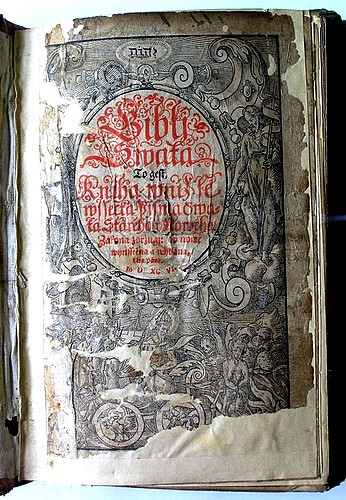 יהוה
Biblj
Swatá
To gest,
Kniha w njž se
wssecka Pjsma Swa
tá Starého y Nowého
Zákona zdržugj: w nowě
wytisstěná a wydaná,
Léta Páně,
M D XC VI.